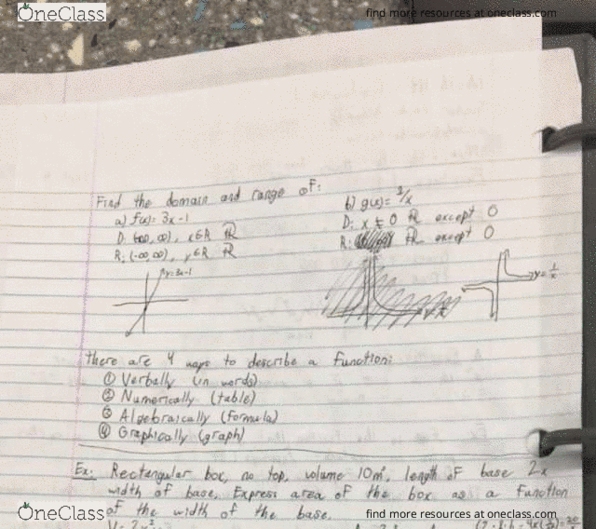 OneClass
find more resources at oneclass.com
Find the domain and range of:
a) f(x)= 3x-1
D: (-∞, ∞), x∈R ℝ
R: (-∞, ∞), y∈R ℝ
y=3x-1
b) g(x)= 1/x
D: x ≠ 0 ℝ except 0
R: ℝ except 0
y= 1/x
there are 4 ways to describe a function:
① Verbally (in words)
② Numerically (table)
③ Algebraically (formula)
④ Graphically (graph)
Ex: Rectangular box, no top, volume 10m³, length of base 2x
width of base. Express area of the box as a function
of the width of the base.
OneClass
find more resources at oneclass.com